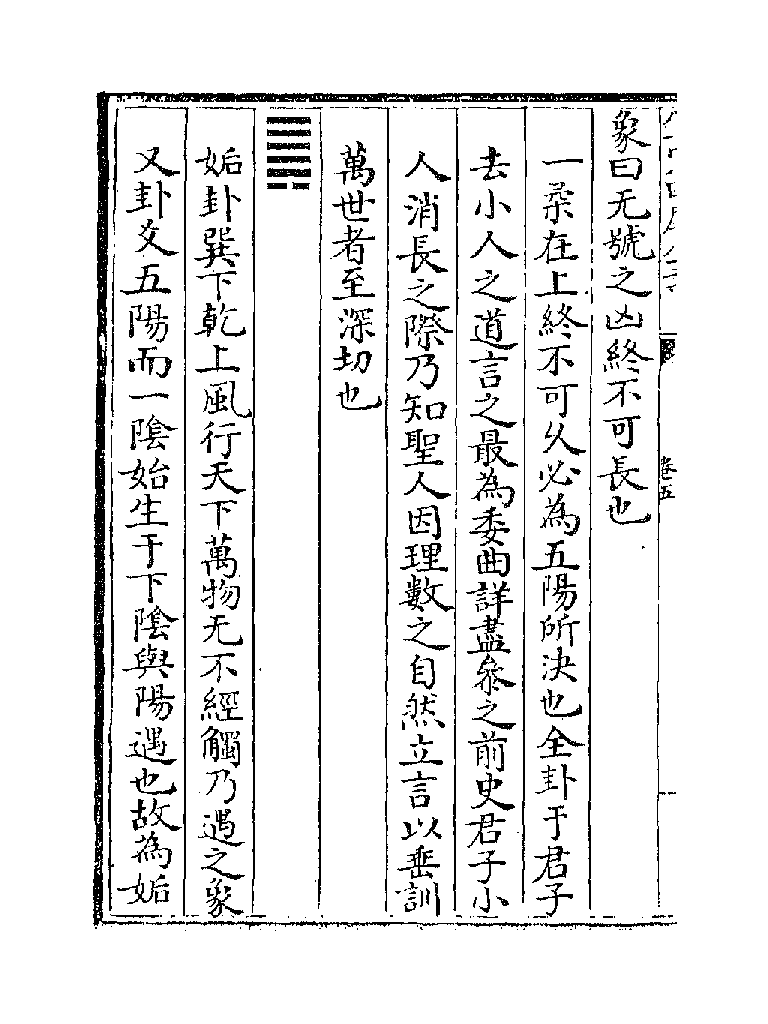 象曰无號之凶終不可長也
一柔在上終不可久必為五陽所決也全卦于君子
去小人之道言之最為委曲詳盡叅之前史君子小
人消長之際乃知聖人因理數之自然立言以垂訓
萬世者至深切也
䷫
姤卦巽下乾上風行天下萬物无不經觸乃遇之象
又卦爻五陽而一陰始生于下陰與陽遇也故為姤
卷五